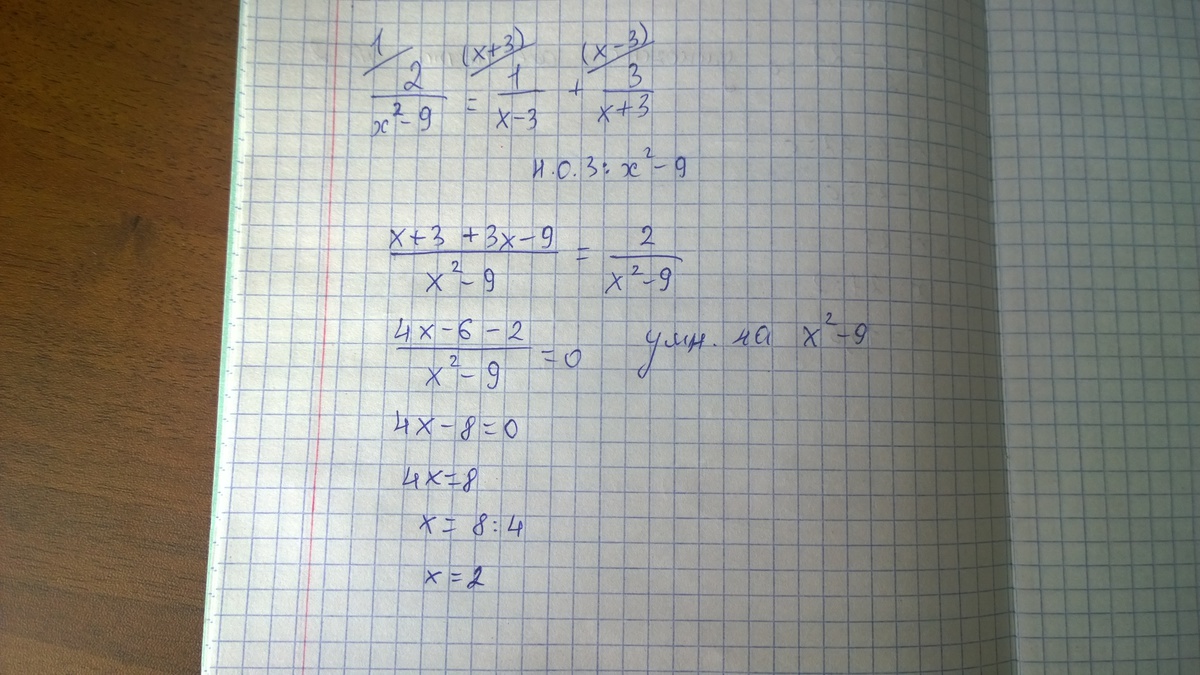 1/ (x+3)/ (x-3)/
2/(x²-9) = 1/(x-3) + 3/(x+3)
Н.О.З: x²-9
(x+3 +3x-9)/(x²-9) = 2/(x²-9)
(4x-6-2)/(x²-9) = 0 умн. на x²-9
4x-8=0
4x=8
x= 8:4
x=2